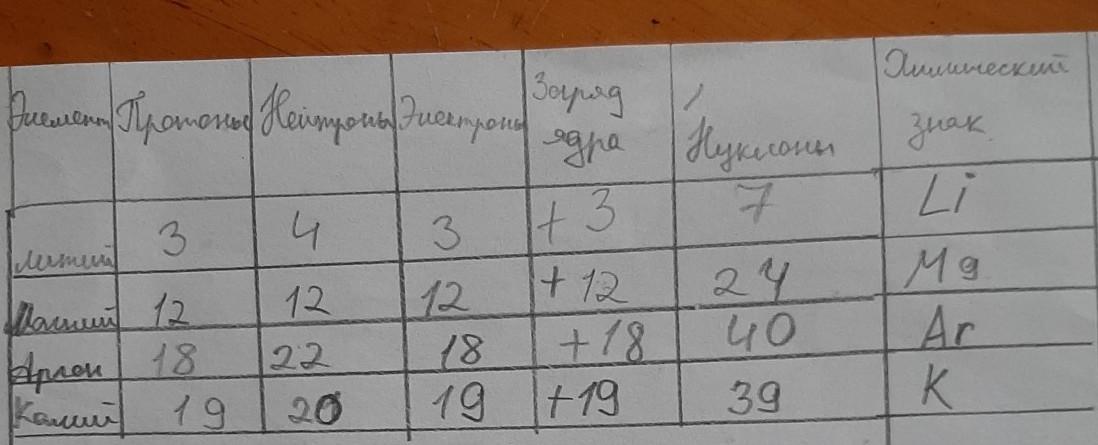 Элемент Протоны Нейтроны Электроны Заряд ядра Нуклоны Химический знак
литий 3 4 3 +3 7 Li
Магний 12 12 12 +12 24 Mg
Аргон 18 22 18 +18 40 Ar
Калий 19 20 19 +19 39 K